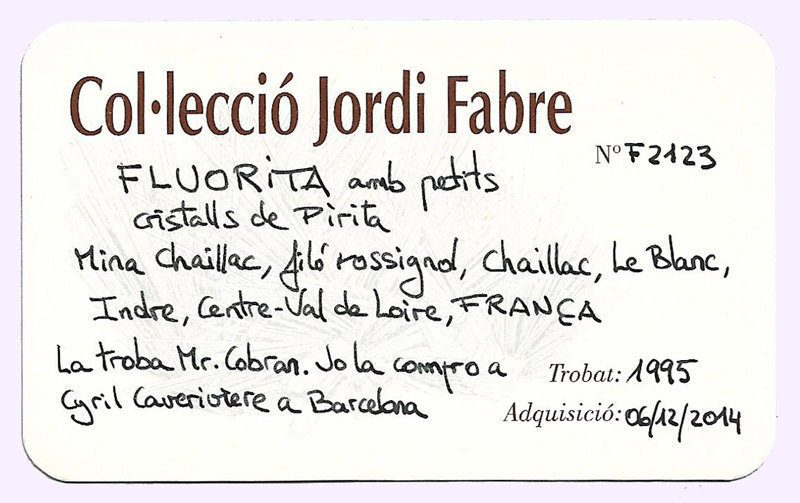 Col·lecció Jordi Fabre
Nº F2123
FLUORITA amb petits
cristalls de Pirita
Mina Chaillac, filó rossignol, Chaillac, Le Blanc,
Indre, Centre-Val de Loire, FRANÇA
La troba Mr. Cobran. Jo la compro a
Cyril Caveriotere a Barcelona
Trobat: 1995
Adquisició: 06/12/2014